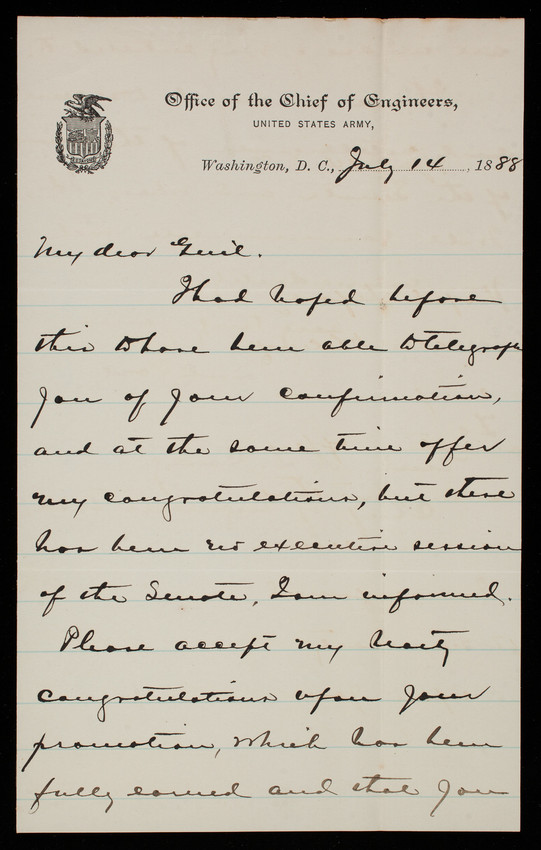 Office of the Chief of Engineers,
UNITED STATES ARMY,
Washington, D. C., July 14, 1888
My dear Genl.
I had hoped before
this to have been able to telegraph
you of your confirmation,
and at the same time offer
my congratulations, but there
has been no executive session
of the Senate, I am informed.
Please accept my hearty
congratulations upon your
promotion, which has been
fully earned and that you